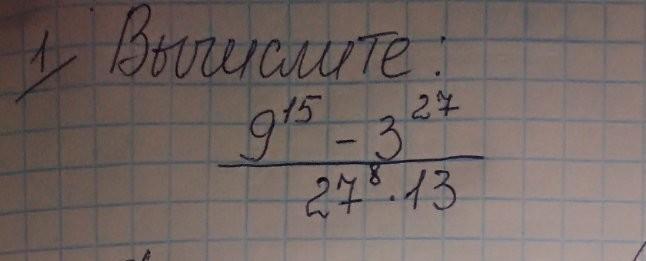 1/ Вычислите:
9^15 - 3^27
27^8 · 13